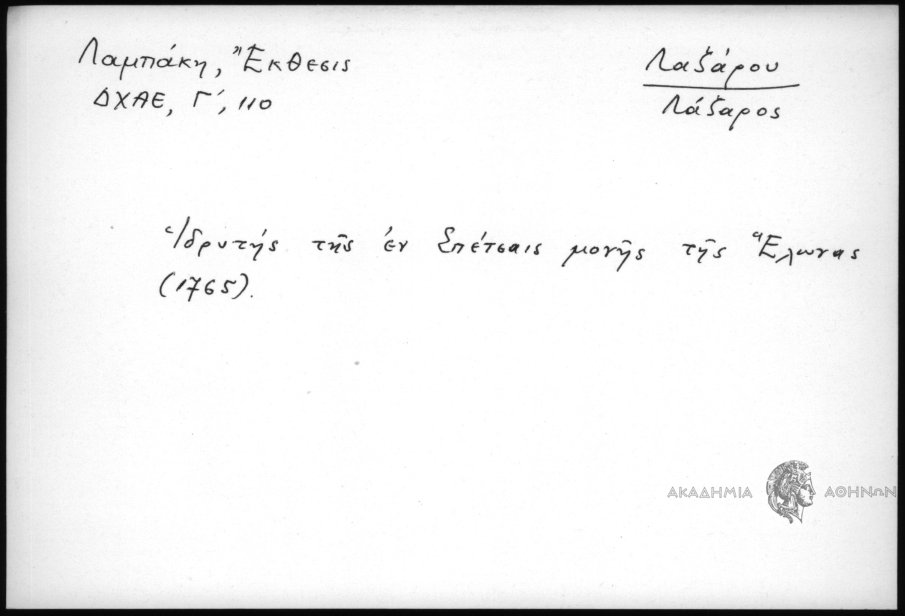 Λαμπάκη, Ἔκθεσις
ΔΧΑΕ, Γ΄, 110
Λαζάρου
Λάζαρος
Ἱδρυτής τῆς ἐν Σπέτσαις μονῆς τῆς Ἕλωνας
(1765).
ΑΚΑΔΗΜΙΑ ΑΘΗΝΩΝ